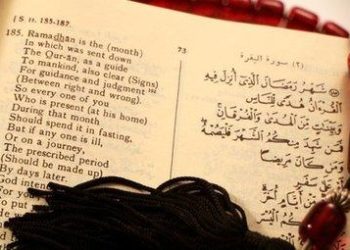 [ S II. 185-187.
73
(٢) سورة البقرة
185. Ramadhān is the (month)
In which was sent down
The Qur-ān, as a guide
To mankind, also clear (Signs)
For guidance and judgment
(Between right and wrong).
So every one of you
Who is present (at his home)
During that month
Should spend it in fasting,
But if any one is ill,
Or on a journey,
The prescribed period
(Should be made up)
By days
God inten
For you
شَهْرُ رَمَضَانَ الَّذِي أُنْزِلَ فِيهِ
الْقُرْآنُ هُدًى لِلنَّاسِ
وَبَيِّنٰتٍ مِنَ الْهُدٰى وَالْفُرْقَانِ
فَمَنْ شَهِدَ مِنْكُمُ الشَّهْرَ فَلْيَصُمْهُ
وَمَنْ كَانَ مَرِيضًا
عَلٰى سَفَرٍ
الْيُسْرَ